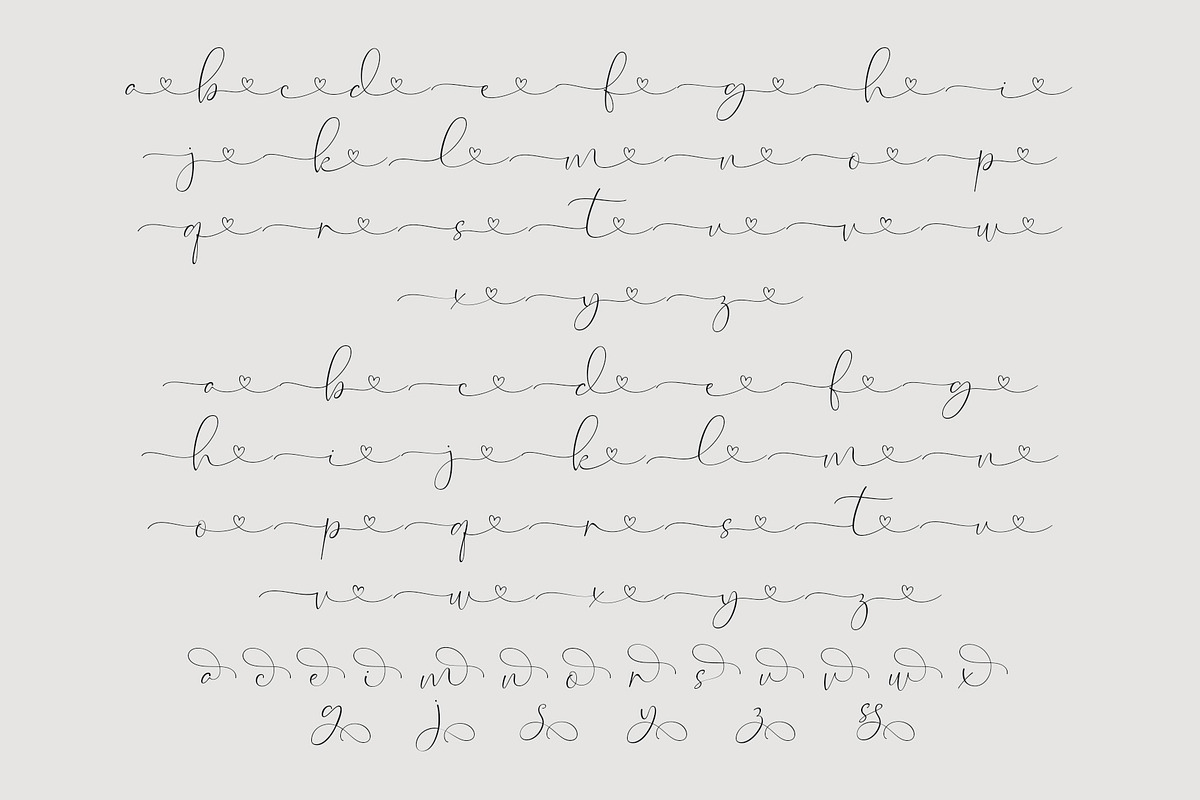 a b c d e f g h i
j k l m n o p
q r s t u v w
x y z
a b c d e f g
h i j k l m n
o p q r s t u
v w x y z
a c e i m n o r s u v w x
g j s y z ss